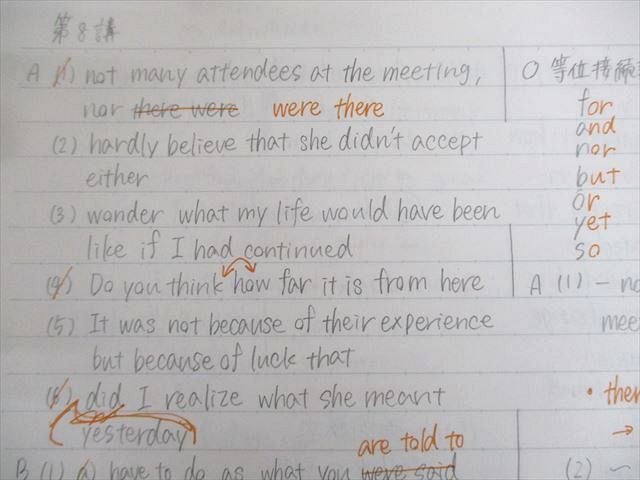 第8講
A (1) not many attendees at the meeting,
nor there were were there
(2) hardly believe that she didn't accept
either
(3) wonder what my life would have been
like if I had continued
(4) Do you think how far it is from here
(5) It was not because of their experience
but because of luck that
(6) did I realize what she meant
yesterday
are told to
B (1) a) have to do as what you were said
○ 等位接続
for
and
nor
but
or
yet
so
A (1) -
• 
→
(2) ~